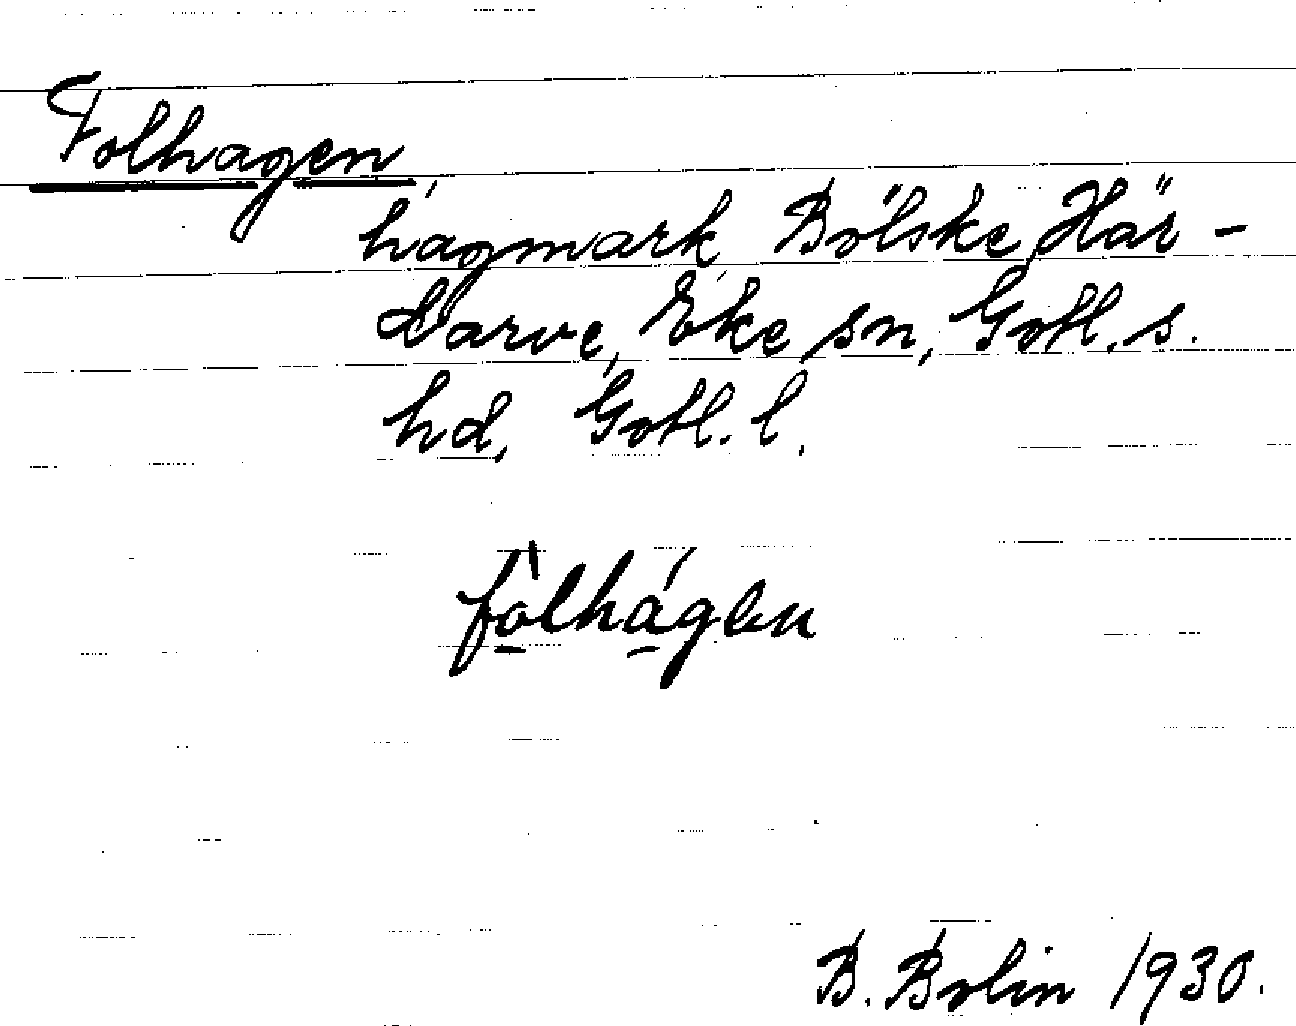 Folhagen,
hagmark Bölske, Här-
darve, Eke sn, Gotl. s.
hd, Gotl. l.
fòlhágen
B. Bolin 1930.